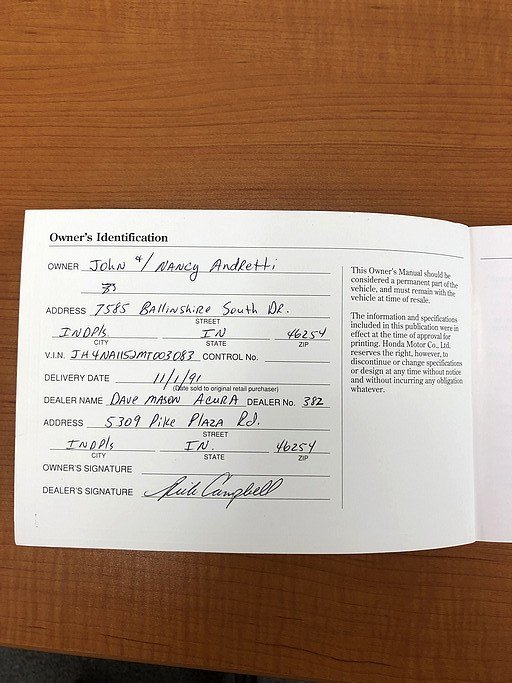 Owner's Identification
OWNER John &/ NANCY Andretti
ADDRESS 7585 Ballinshire South DR.
STREET
INDPls IN 46254
CITY STATE ZIP
V.I.N. JH4NA1152MT003083 CONTROL No.
DELIVERY DATE 11/1/91
(Date sold to original retail purchaser)
DEALER NAME DAVE MASON ACURA DEALER No. 382
ADDRESS 5309 Pike PLAZA Rd.
STREET
INDPls IN. 46254
CITY STATE ZIP
OWNER'S SIGNATURE
DEALER'S SIGNATURE Campbell
This Owner's Manual should be
considered a permanent part of the
vehicle, and must remain with the
vehicle at time of resale.
The information and specifications
included in this publication were in
effect at the time of approval for
printing. Honda Motor Co., Ltd.
reserves the right, however, to
discontinue or change specifications
or design at any time without notice
and without incurring any obligation
whatever.